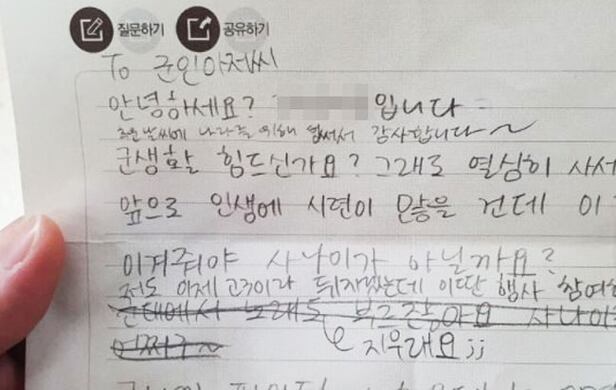 질문하기 공유하기
To 군인아저씨
안녕하세요? 입니다
추운 날씨에 나라를 위해 힘써서 감사합니다~
군생활 힘드신가요? 그래도 열심히 사세
앞으로 인생에 시련이 많을 건데 이
이겨줘야 사나이가 아닐까요?
저도 이제 고3이라 뒤지겠는데 이딴 행사 참여
군대에서 노래도 부르잖아요 사나이
어쩌구~
지우래요;;